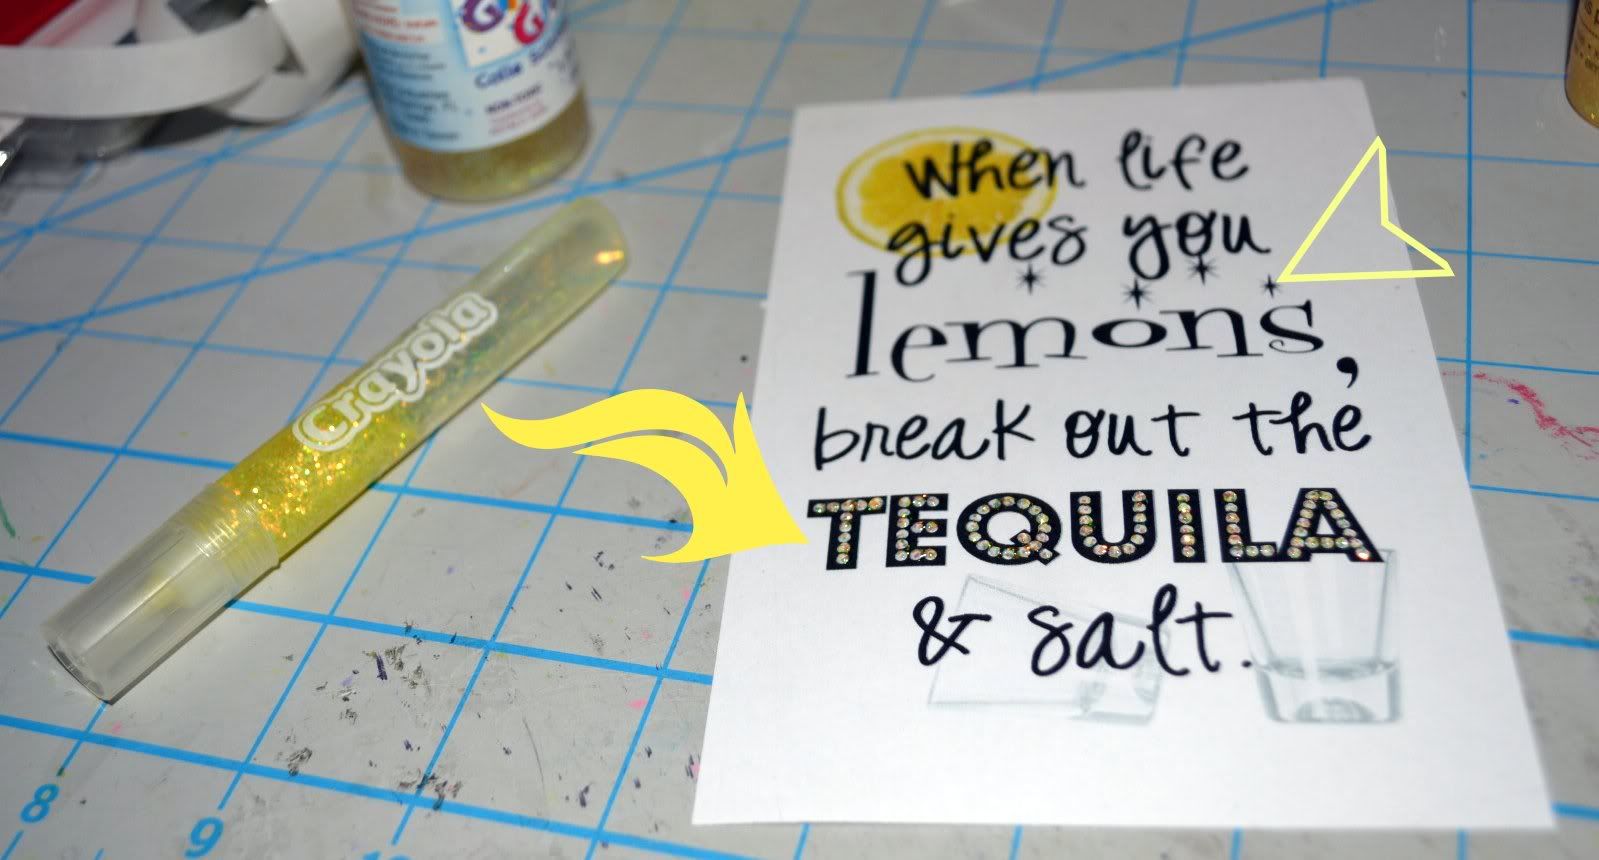 When life
gives you
lemons,
break out the
TEQUILA
& salt.
Crayola
8
9